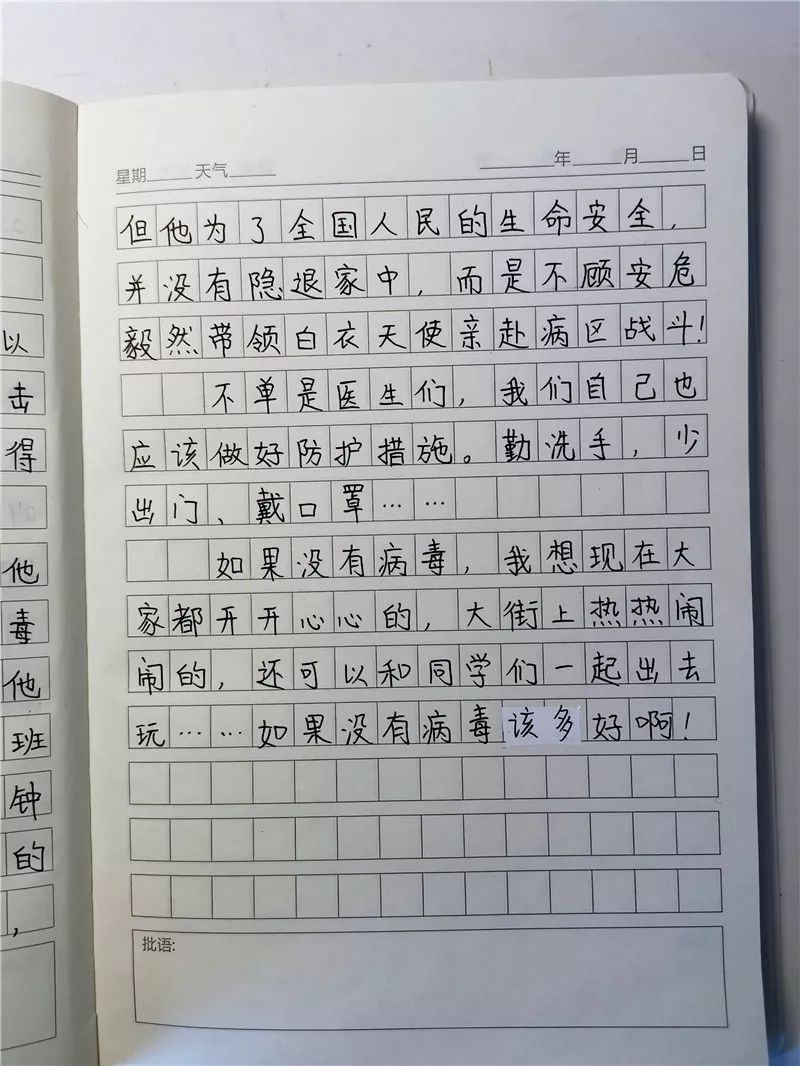 星期 天气 年 月 日
但他为了全国人民的生命安全,
并没有隐退家中,而是不顾安危
毅然带领白衣天使亲赴病区战斗!
不单是医生们,我们自己也
应该做好防护措施。勤洗手,少
出门、戴口罩……
如果没有病毒,我想现在大
家都开开心心的,大街上热热闹
闹的,还可以和同学们一起出去
玩……如果没有病毒该多好啊!
批语:
以
击
得
他
毒
他
班
钟
的
,